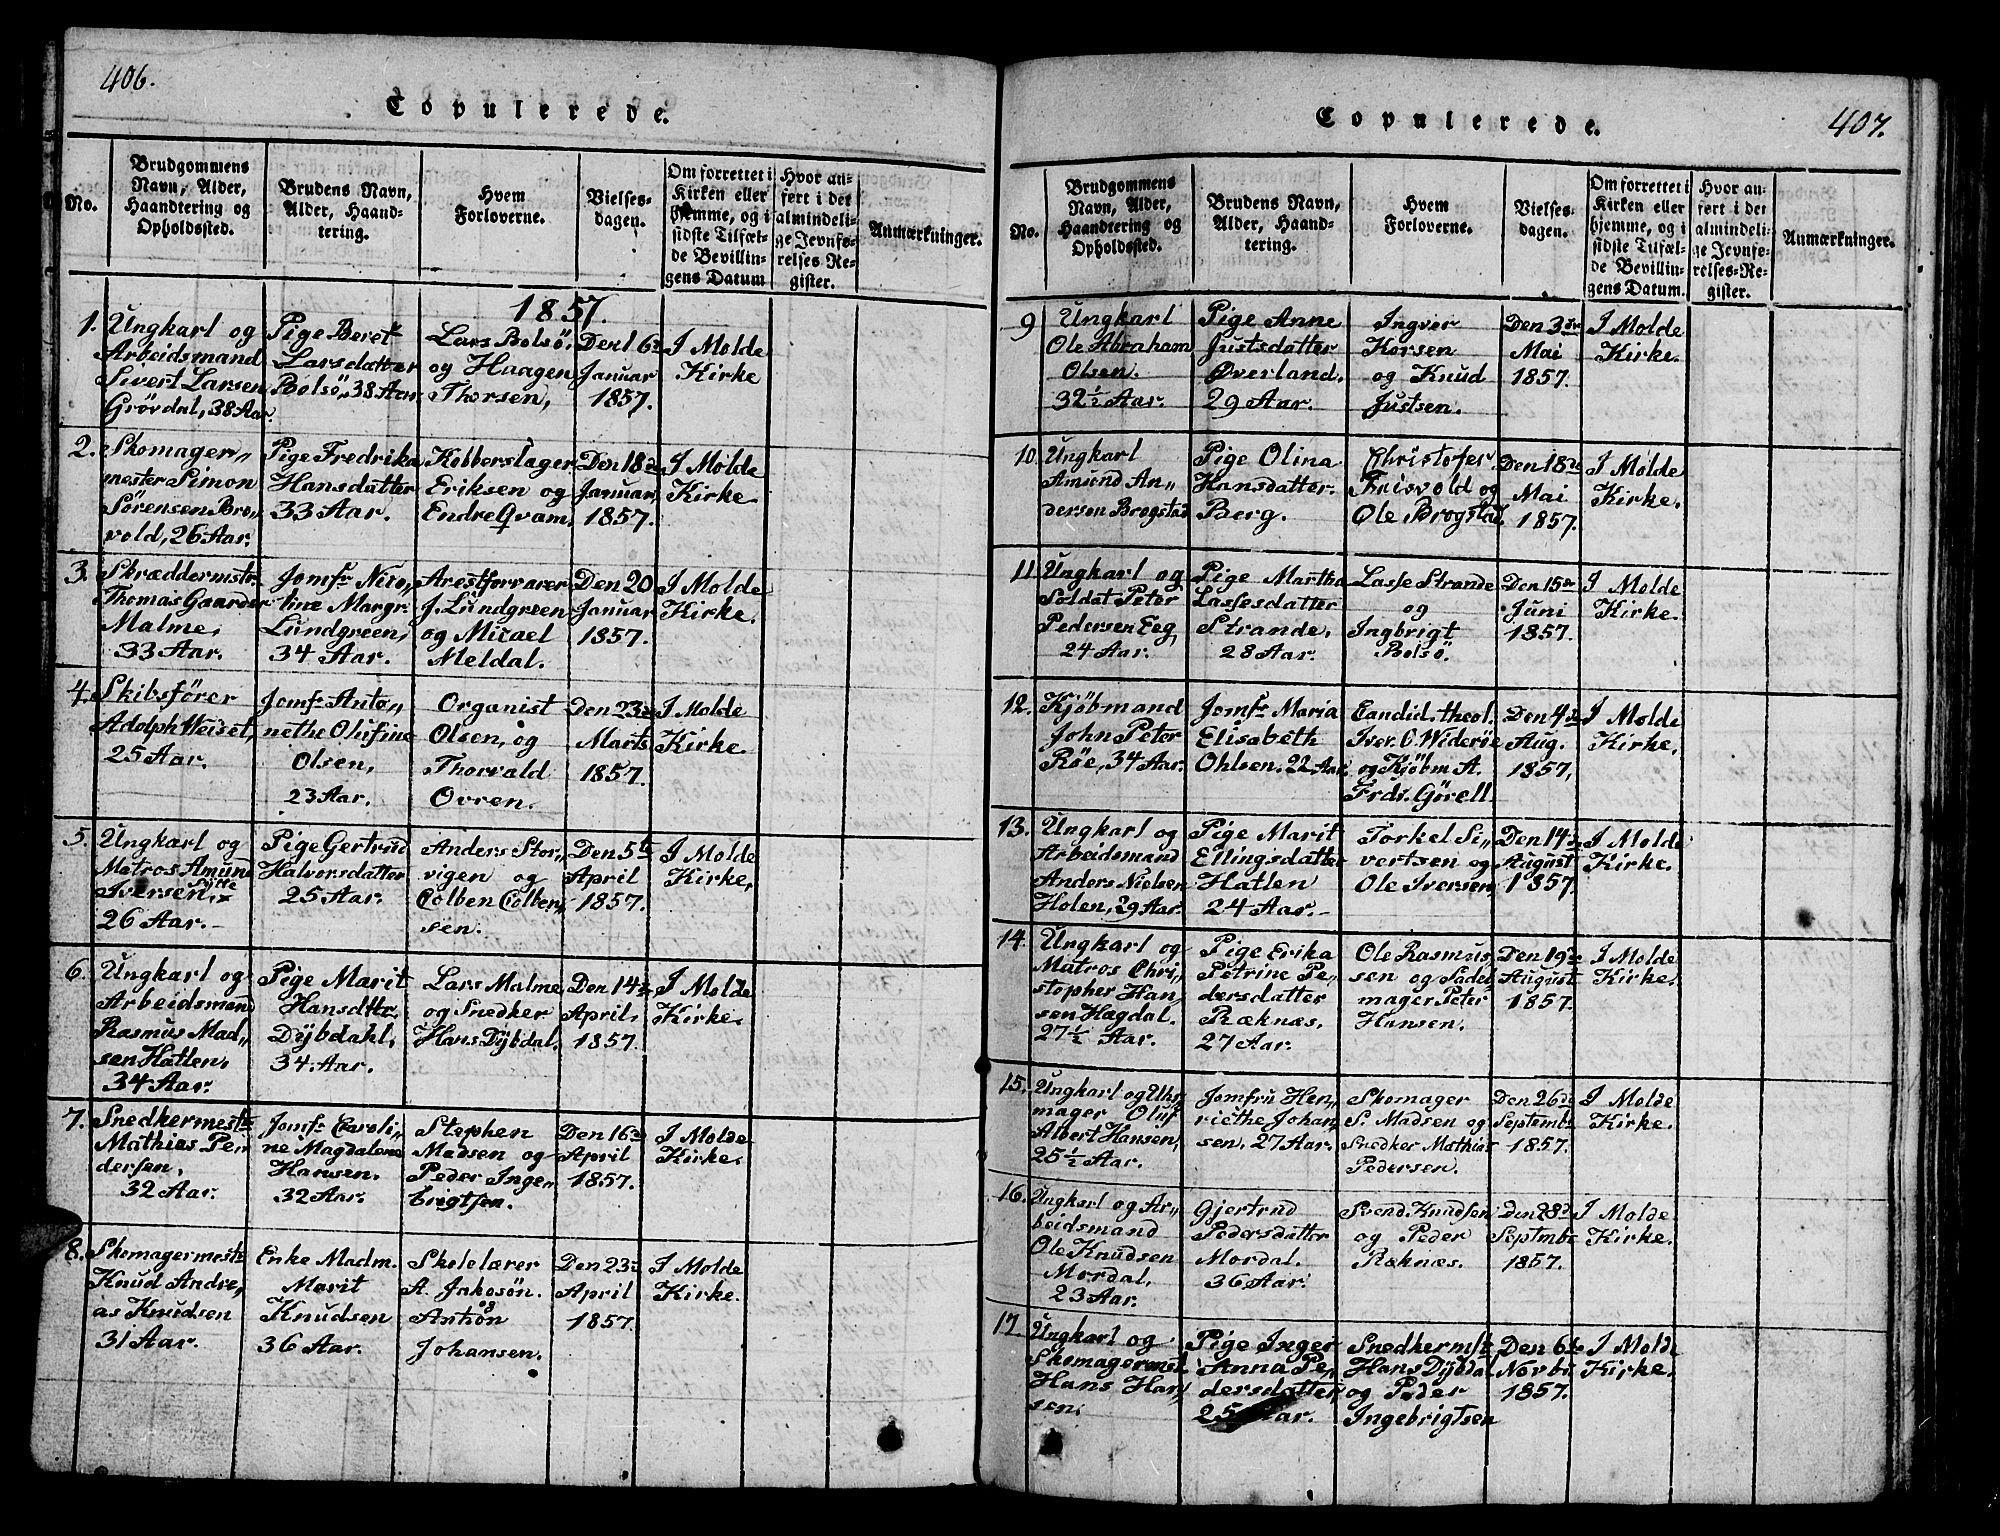 406.
Copulerede.
No.
Brudgommens Navn, Alder, Haandtering og Opholdssted.
Brudens Navn, Alder, Haandtering.
Hvem Forloverne.
Vielsesdagen.
Om forrettet i Kirken eller hjemme, og i sidste Tilfælde Bevillingens Datum
Hvor anført i det almindelige Jevnførelses-Register.
Anmærkninger.
1857.
1. Ungkarl og
Arbeidsmand
Sivert Larsen
Grövdal, 38 Aar
Pige Beret
Larsdatter
Bolsö, 38 Aar
Lars Bolsö,
og Haagen
Thorsen,
Den 16de
Januar
1857.
I Molde
Kirke
2. Skomager„
mester Simon
Sörensen Bro„
vold, 26 Aar.
Pige Fredrika
Hansdatter
33 Aar.
Kobberslager
Eriksen og
Endre Qvam,
Den 18de
Januar,
1857.
I Molde
Kirke.
3. Skræddermstr.
Thomas Gaarder
Malme,
33 Aar.
Jomfr Nico„
line Margr.
Lundgreen,
34 Aar.
Arestforvarer
J. Lundgreen
og Micael
Meldal.
Den 20
Januar
1857.
I Molde
Kirke.
4. Skibsförer
Adolph Weiset,
25 Aar.
Jomfr Anto„
nethe Olufine
Olsen,
23 Aar.
Organist
Olsen, og
Thorvald
Ovren.
Den 23de
Marts
1857.
I Molde
Kirke.
5. Ungkarl og
Matros Amund
Iversen, Sylte
26 Aar.
Pige Gertrud
Halvorsdatter
25 Aar.
Anders Stor„
vigen og
Colben Colben„
sen.
Den 5te
April
1857.
I Molde
Kirke,
6. Ungkarl og
Arbeidsmand
Rasmus Mad„
sen Hatlen,
34 Aar.
Pige Marit
Hansdtter,
Dybdahl,
34 Aar.
Lars Malme
og Snedker
Hans Dybdal.
Den 14de
April,
1857.
I Molde
Kirke.
7. Snedkermestr
Mathias Pe„
dersen,
32 Aar.
Jomfr Caroli„
ne Magdalene
Hansen.
32 Aar.
Stephen
Madsen og
Peder Inge„
brigtsen.
Den 16de
April
1857.
I Molde
Kirke.
8. Skomagermestr
Knud Andre„
as Knudsen
31 Aar.
Enke Madm.
Marit
Knudsen
36 Aar.
Skolelærer
A. Jakosön.
og
Antön
Johansen.
Den 23de
April
1857.
I Molde
Kirke.
Copulerede.
407.
No.
Brudgommens Navn, Alder, Haandtering og Opholdssted.
Brudens Navn, Alder, Haandtering.
Hvem Forloverne.
Vielsesdagen.
Om forrettet i Kirken eller hjemme, og i sidste Tilfælde Bevillingens Datum.
Hvor anført i det almindelige Jevnførelses-Register.
Anmærkninger.
9 Ungkarl
Ole Abraham
Olsen.
32½ Aar.
Pige Anne
Justsdatter
Øverland.
29 Aar.
Ingver
Korsen
og Knud
Justsen.
Den 3die
Mai
1857.
I Molde
Kirke.
10. Ungkarl
Amund An„
dersen Brogstad
Pige Olina
Hansdatter.
Berg.
Christofer
Frisvold og
Ole Brogstad.
Den 18de
Mai
1857.
I Molde
Kirke.
11. Ungkarl og
Soldat Peter
Pedersen Eeg,
24 Aar.
Pige Martha
Lassesdatter
Strande.
28 Aar.
Lasse Strande
og
Ingbrigt
Bolsö.
Den 15de
Juni
1857.
I Molde
Kirke.
12. Kjöbmand
John Peter
Röe, 34 Aar.
Jomfr Maria
Elisabeth
Ohlsen. 22 Aar
Candid. theol.
Iver. C. Wideröe
og Kjöbm A.
Frds. Görell.
Den 4de
Aug.
1857,
I Molde
Kirke.
13. Ungkarl og
Arbeidsmand
Anders Nielsen
Holen, 29 Aar.
Pige Marit
Ellingsdatter
Hatlen
24 Aar.
Torkel Si„
vertsen og
Ole Iversen,
Den 14de
August
1857.
I Molde
Kirke.
14. Ungkarl og
Matros Chri„
stopher Han„
sen Hagdal.
27½ Aar.
Pige Erika
Petrine Pe„
dersdatter
Ræknæs.
27 Aar.
Ole Rasmus„
sen og Sadel„
mager Peter
Hansen.
Den 19de
August
1857.
I Molde
Kirke.
15. Ungkarl og Uhr„
mager Oluf
Albert Hansen,
25½ Aar.
Jomfru Hen„
riethe Johan„
sen. 27 Aar.
Skomager
S. Madsen og
Snedker Mathias
Pedersen.
Den 26de
Septembr
1857.
I Molde
Kirke.
16. Ungkarl og Ar„
beidsmand
Ole Knudsen
Mordal.
23 Aar.
Gjertrud
Pedersdatter
Mordal.
36 Aar.
Svend Knudsen
og Peder
Ræknæs.
Den 28de
Septmbr
1857.
I Molde
Kirke.
17. Ungkarl og
Skomagermst
Hans Han„
sen.
Pige Inger
Anna Pe„
dersdatter,
25 Aar.
Snedkermst
Hans Dybdal
og Peder
Ingebrigtsen
Den 6te
Novbr
1857.
I Molde
Kirke.